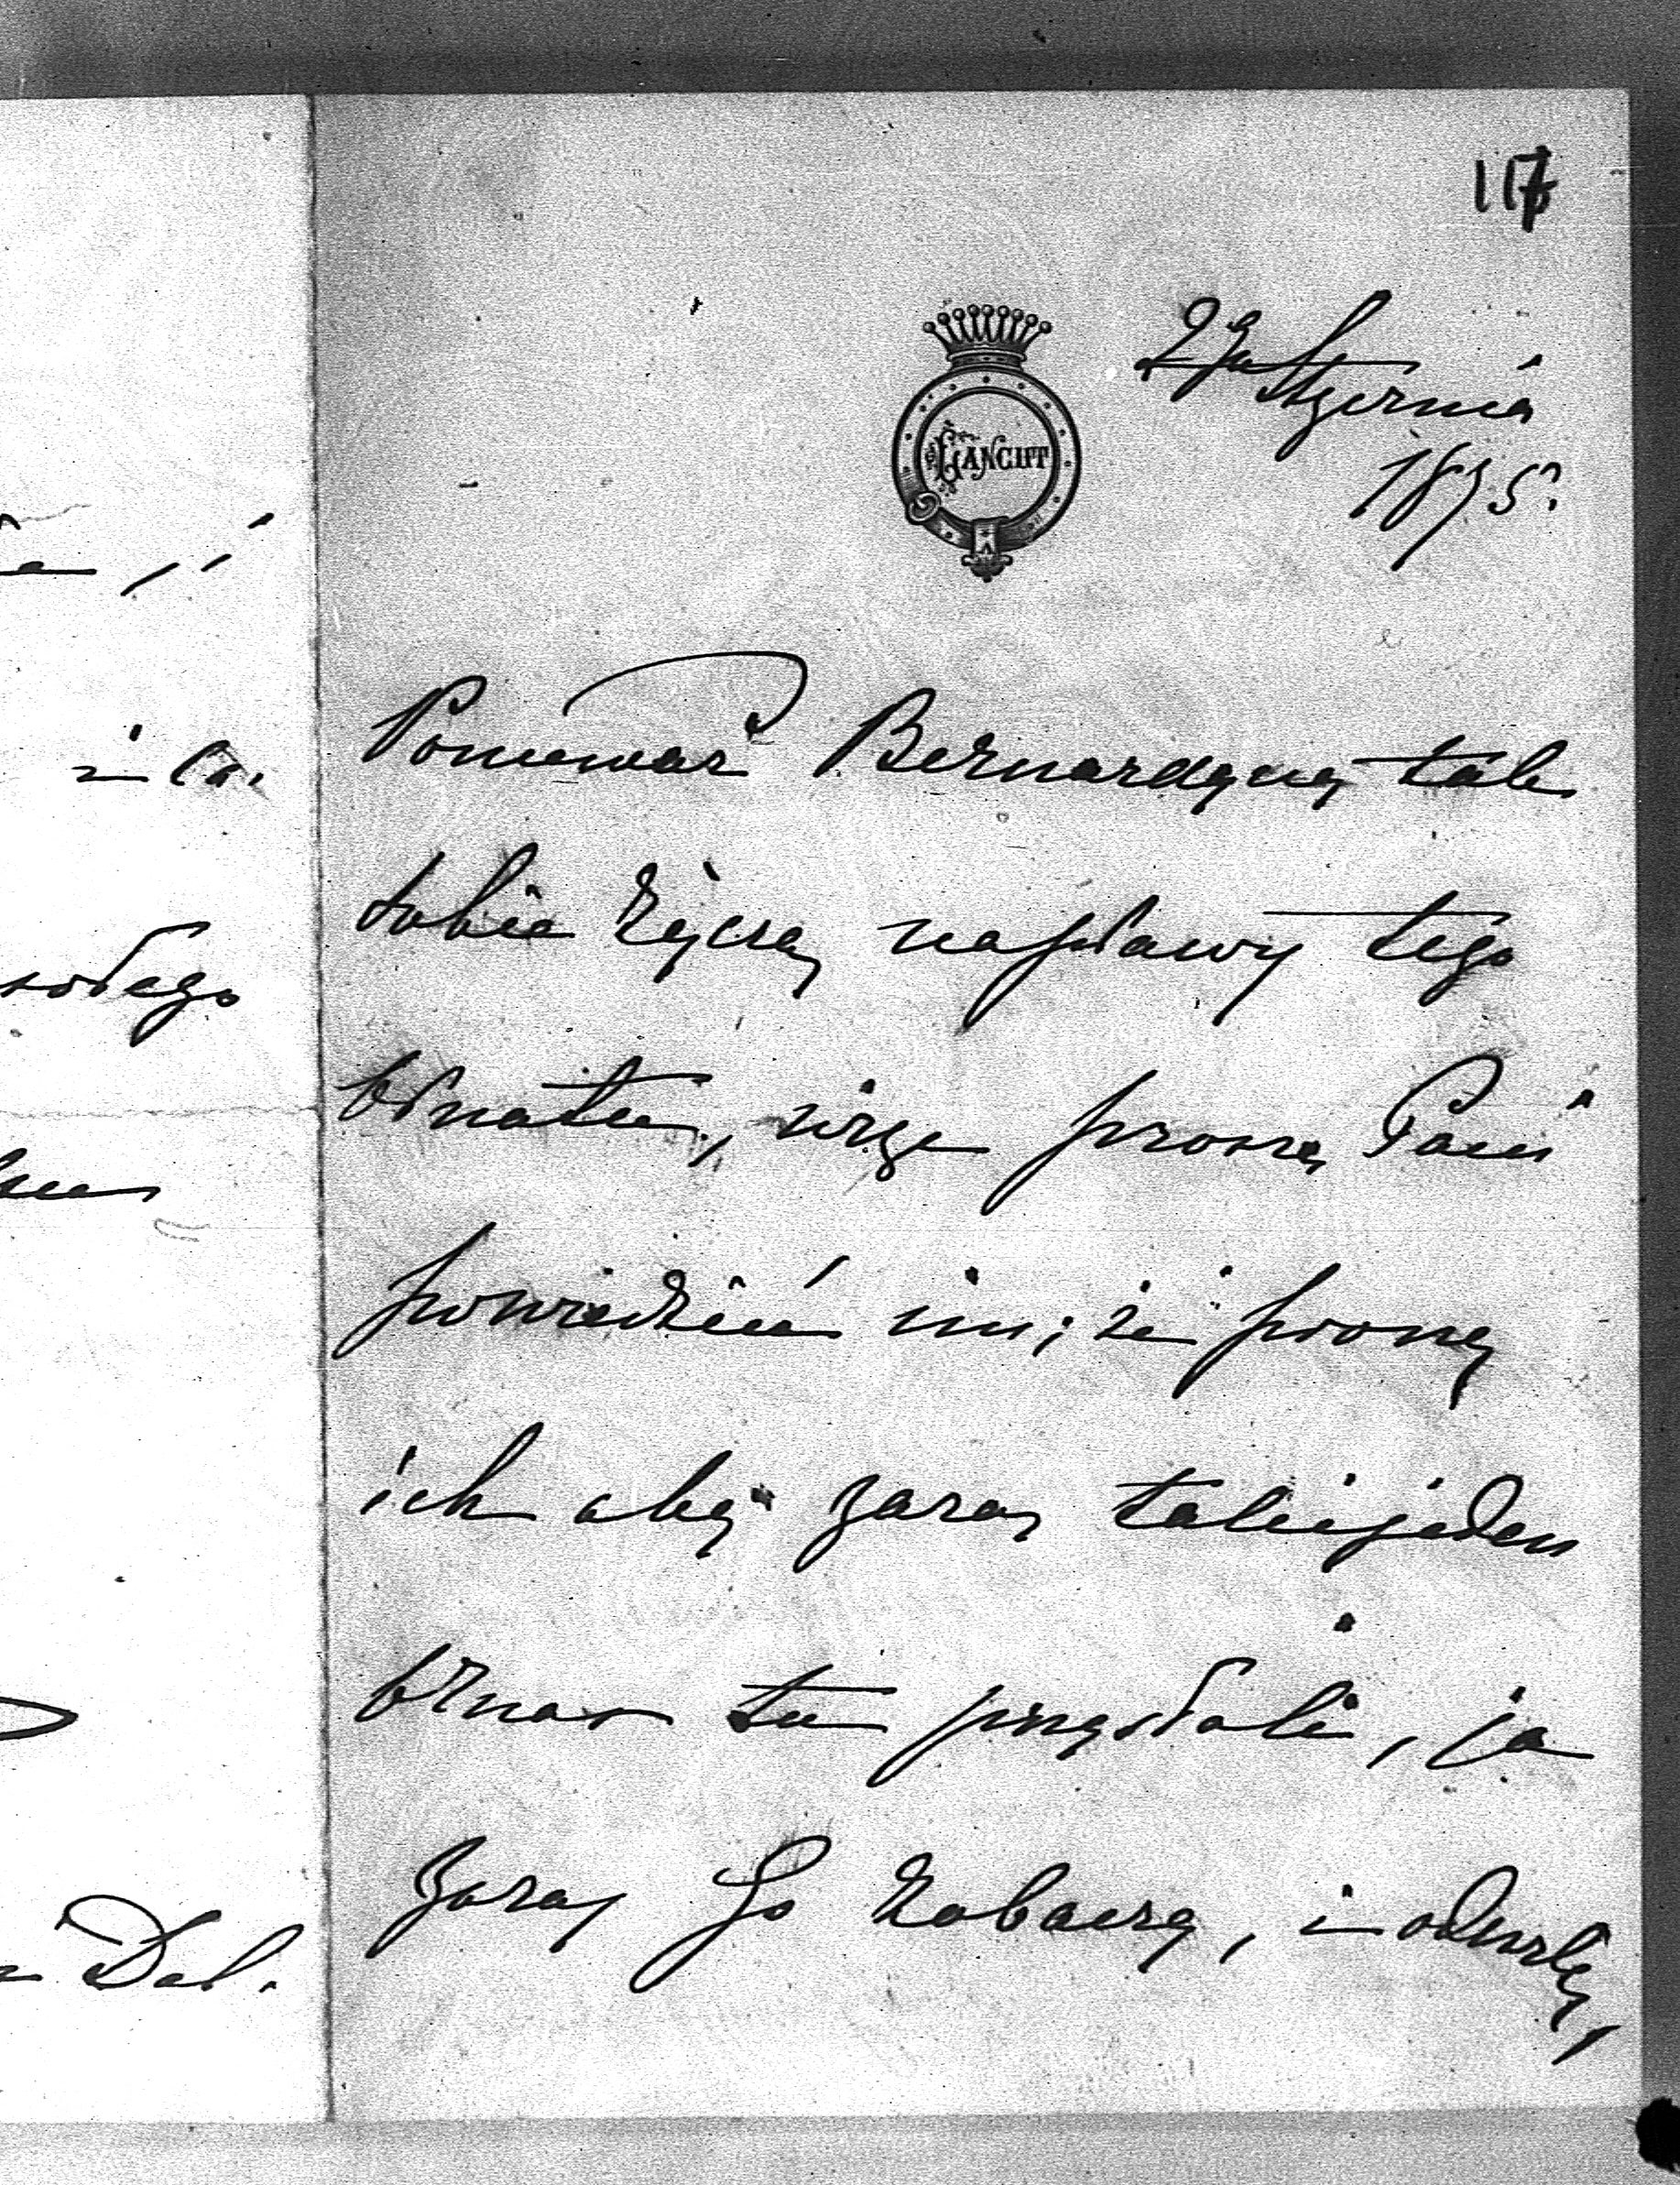 117
ŁAŃCUT
2go Stycznia
1875.
Ponieważ Bernardyny tak
sobie życzą naprawy tego
ornatu, więc proszę Pani
powiedzieć im, że proszę
ich aby zaraz taki jeden
ornat tu przysłali, ja
zaraz go zobaczę, i odeszlę,
i
Dab.